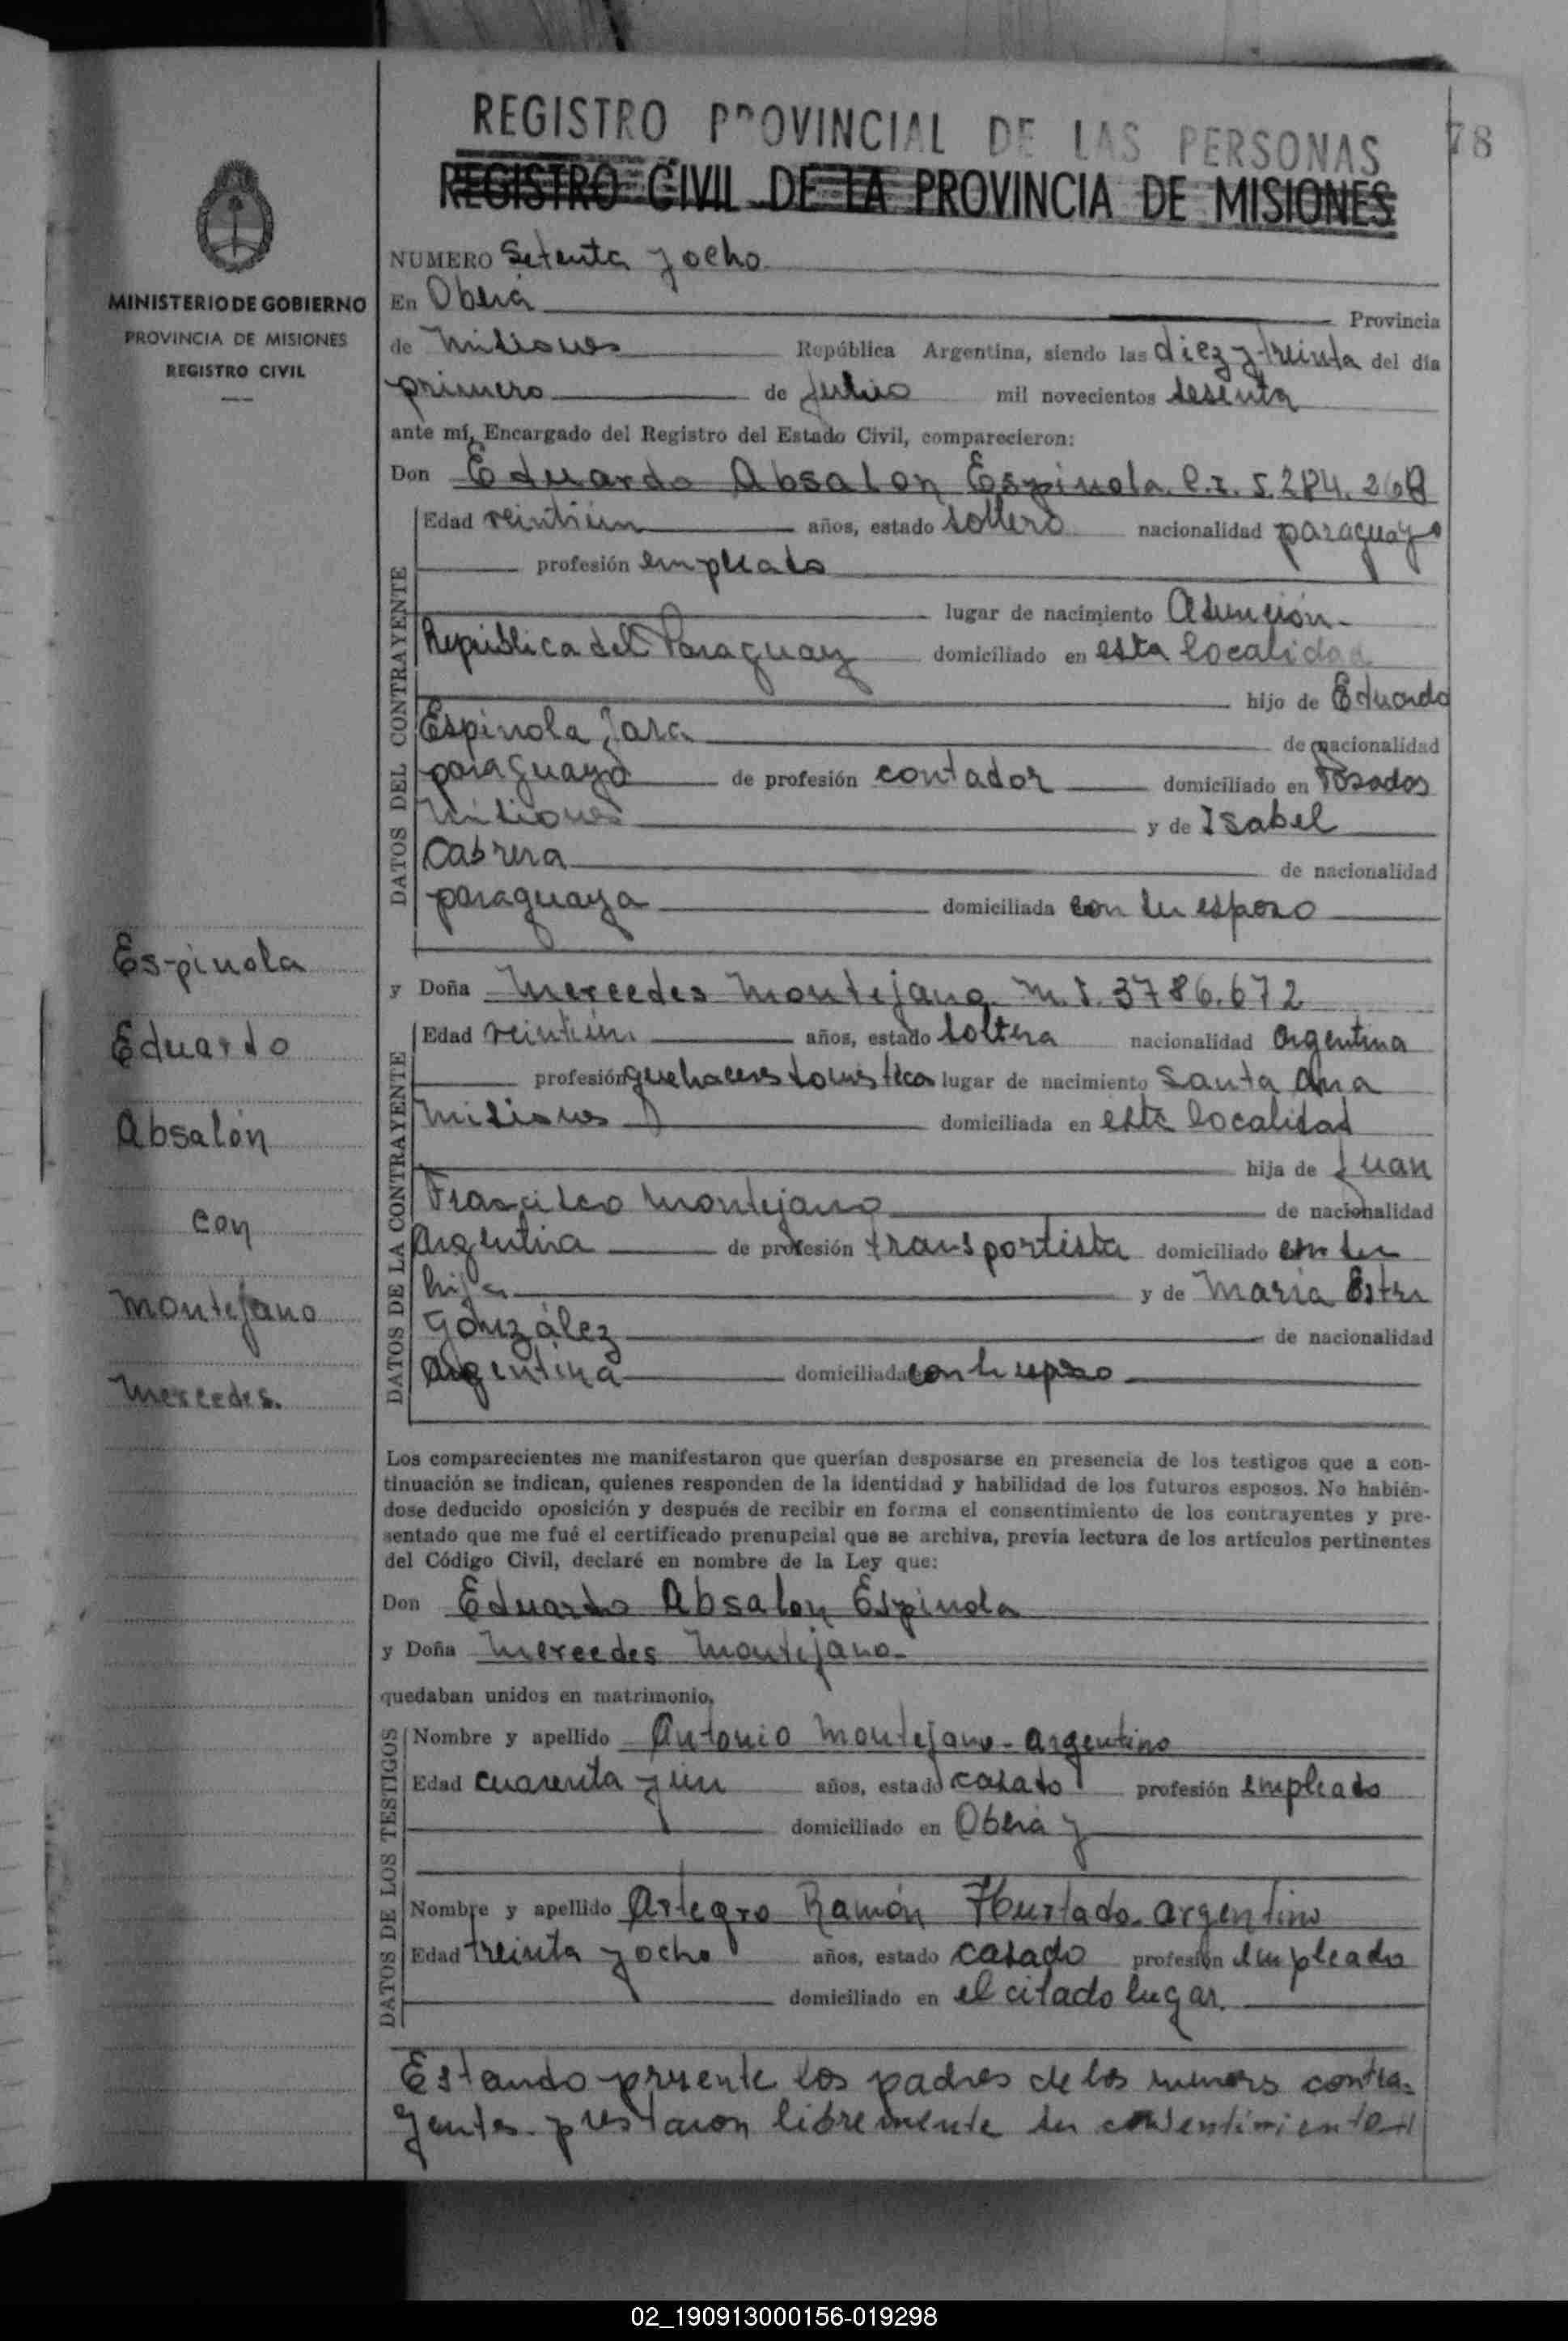 REGISTRO PROVINCIAL DE LAS PERSONAS
78
REGISTRO CIVIL DE LA PROVINCIA DE MISIONES
MINISTERIO DE GOBIERNO
PROVINCIA DE MISIONES
REGISTRO CIVIL
NUMERO Setenta y ocho
En Oberá Provincia
de Misiones República Argentina, siendo las diez y treinta del día
primero de Julio mil novecientos sesenta
ante mí, Encargado del Registro del Estado Civil, comparecieron:
Don Eduardo Absalon Espinola C.I. 5.284.268
DATOS DEL CONTRAYENTE
Edad veintiún años, estado soltero nacionalidad paraguayo
profesión empleado
lugar de nacimiento Asunción-
República del Paraguay domiciliado en esta localidad
hijo de Eduardo
Espinola Jara de nacionalidad
paraguayo de profesión contador domiciliado en Posadas
Misiones y de Isabel
Cabrera de nacionalidad
paraguaya domiciliada con su esposo
Espinola
Eduardo
Absalón
con
Montejano
Mercedes.
y Doña Mercedes Montejano M.I. 3786.672
DATOS DE LA CONTRAYENTE
Edad veintiún años, estado soltera nacionalidad Argentina
profesión quehaceres domésticos lugar de nacimiento Santa Ana
Misiones domiciliada en esta localidad
hija de Juan
Francisco Montejano de nacionalidad
Argentina de profesión transportista domiciliado con su
hija y de María
González de nacionalidad
Argentina domiciliada con su esposo
Los comparecientes me manifestaron que querían desposarse en presencia de los testigos que a con-
tinuación se indican, quienes responden de la identidad y habilidad de los futuros esposos. No habién-
dose deducido oposición y después de recibir en forma el consentimiento de los contrayentes y pre-
sentado que me fué el certificado prenupcial que se archiva, previa lectura de los artículos pertinentes
del Código Civil, declaré en nombre de la Ley que:
Don Eduardo Absalon Espinola
y Doña Mercedes Montejano-
quedaban unidos en matrimonio.
DATOS DE LOS TESTIGOS
Nombre y apellido Antonio Montejano- argentino
Edad cuarenta y un años, estado casado profesión empleado
domiciliado en Oberá y
Nombre y apellido Ramón Hurtado- argentino
Edad treinta y ocho años, estado casado profesión empleado
domiciliado en el citado lugar.
Estando presente los padres de los menores contra-
yentes prestaron libremente su consentimiento
02_190913000156-019298